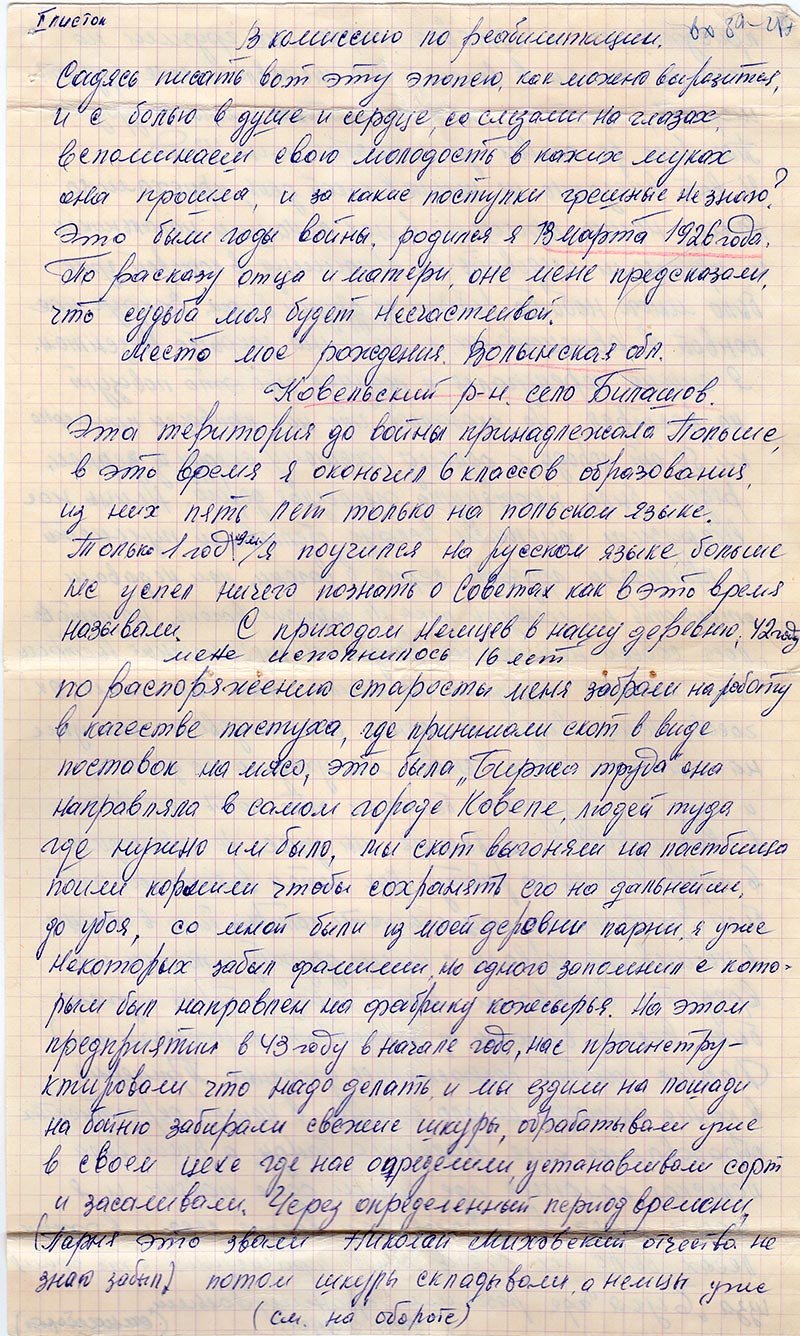 I листок
В комиссию по реабилитации.
Садясь писать вот эту эпопею, как можно выразится,
и с болью в душе и сердце, со слезами на глазах,
вспоминаем свою молодость в каких муках
она прошла, и за какие поступки грешные не знаю?
Это были годы войны. родился я 13 марта 1926 года.
По расказу отца и матери, оне мене предсказали,
что судьба моя будет Несчастливой.
Место мое рождения. Волынская обл.
Ковельский р-н. село Билашов.
Эта територия до войны принадлежала Польше,
в это время я окончил 6 классов образования,
из них пять лет только на польском языке.
Только 1 год /я поучился на русском языке, больше
не успел ничего познать о Советах как в это время
называли. С приходом немцев в нашу деревню, 42 году
мене исполнилось 16 лет
по распоряжению старосты меня забрали на работу
в качестве пастуха, где принимали скот в виде
поставок на мясо, это была „Биржа труда" она
направляла в самом городе Ковеле, людей туда
где нужно им было, мы скот выгоняли на пастбища
поили кормили чтобы сохранять его на дальнейши,
до убоя, со мной были из моей деровни парни, я уже
некоторых забыл фамилии, но одного запомнил с кото-
рым был направлен на фабрику кожсырья. На этом
предприятии в 43 году в начале года, нас проинстру-
ктировали что надо делать, и мы ездили на лошади
на бойню забирали свежие шкуры, обрабатывали уже
в своем цехе где нас определили, устанавливали сорт
и засаливали. Через определенный период времени,
(Парня это звали Николай Миховский отчества не
знаю забыл) потом шкуры складывали, а немцы уже
(см. на обороте)